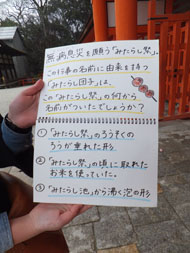 無病息災を願う「みたらし祭」。
この行事の名前に由来を持つ
「みたらし団子」は、
この「みたらし祭」の何から
名前がついたでしょうか？
① 「みたらし祭」のろうそくの
ろうが垂れた形
② 「みたらし祭」の頃に取れた
お米を使っていた。
③ 「みたらし池」から沸く泡の形